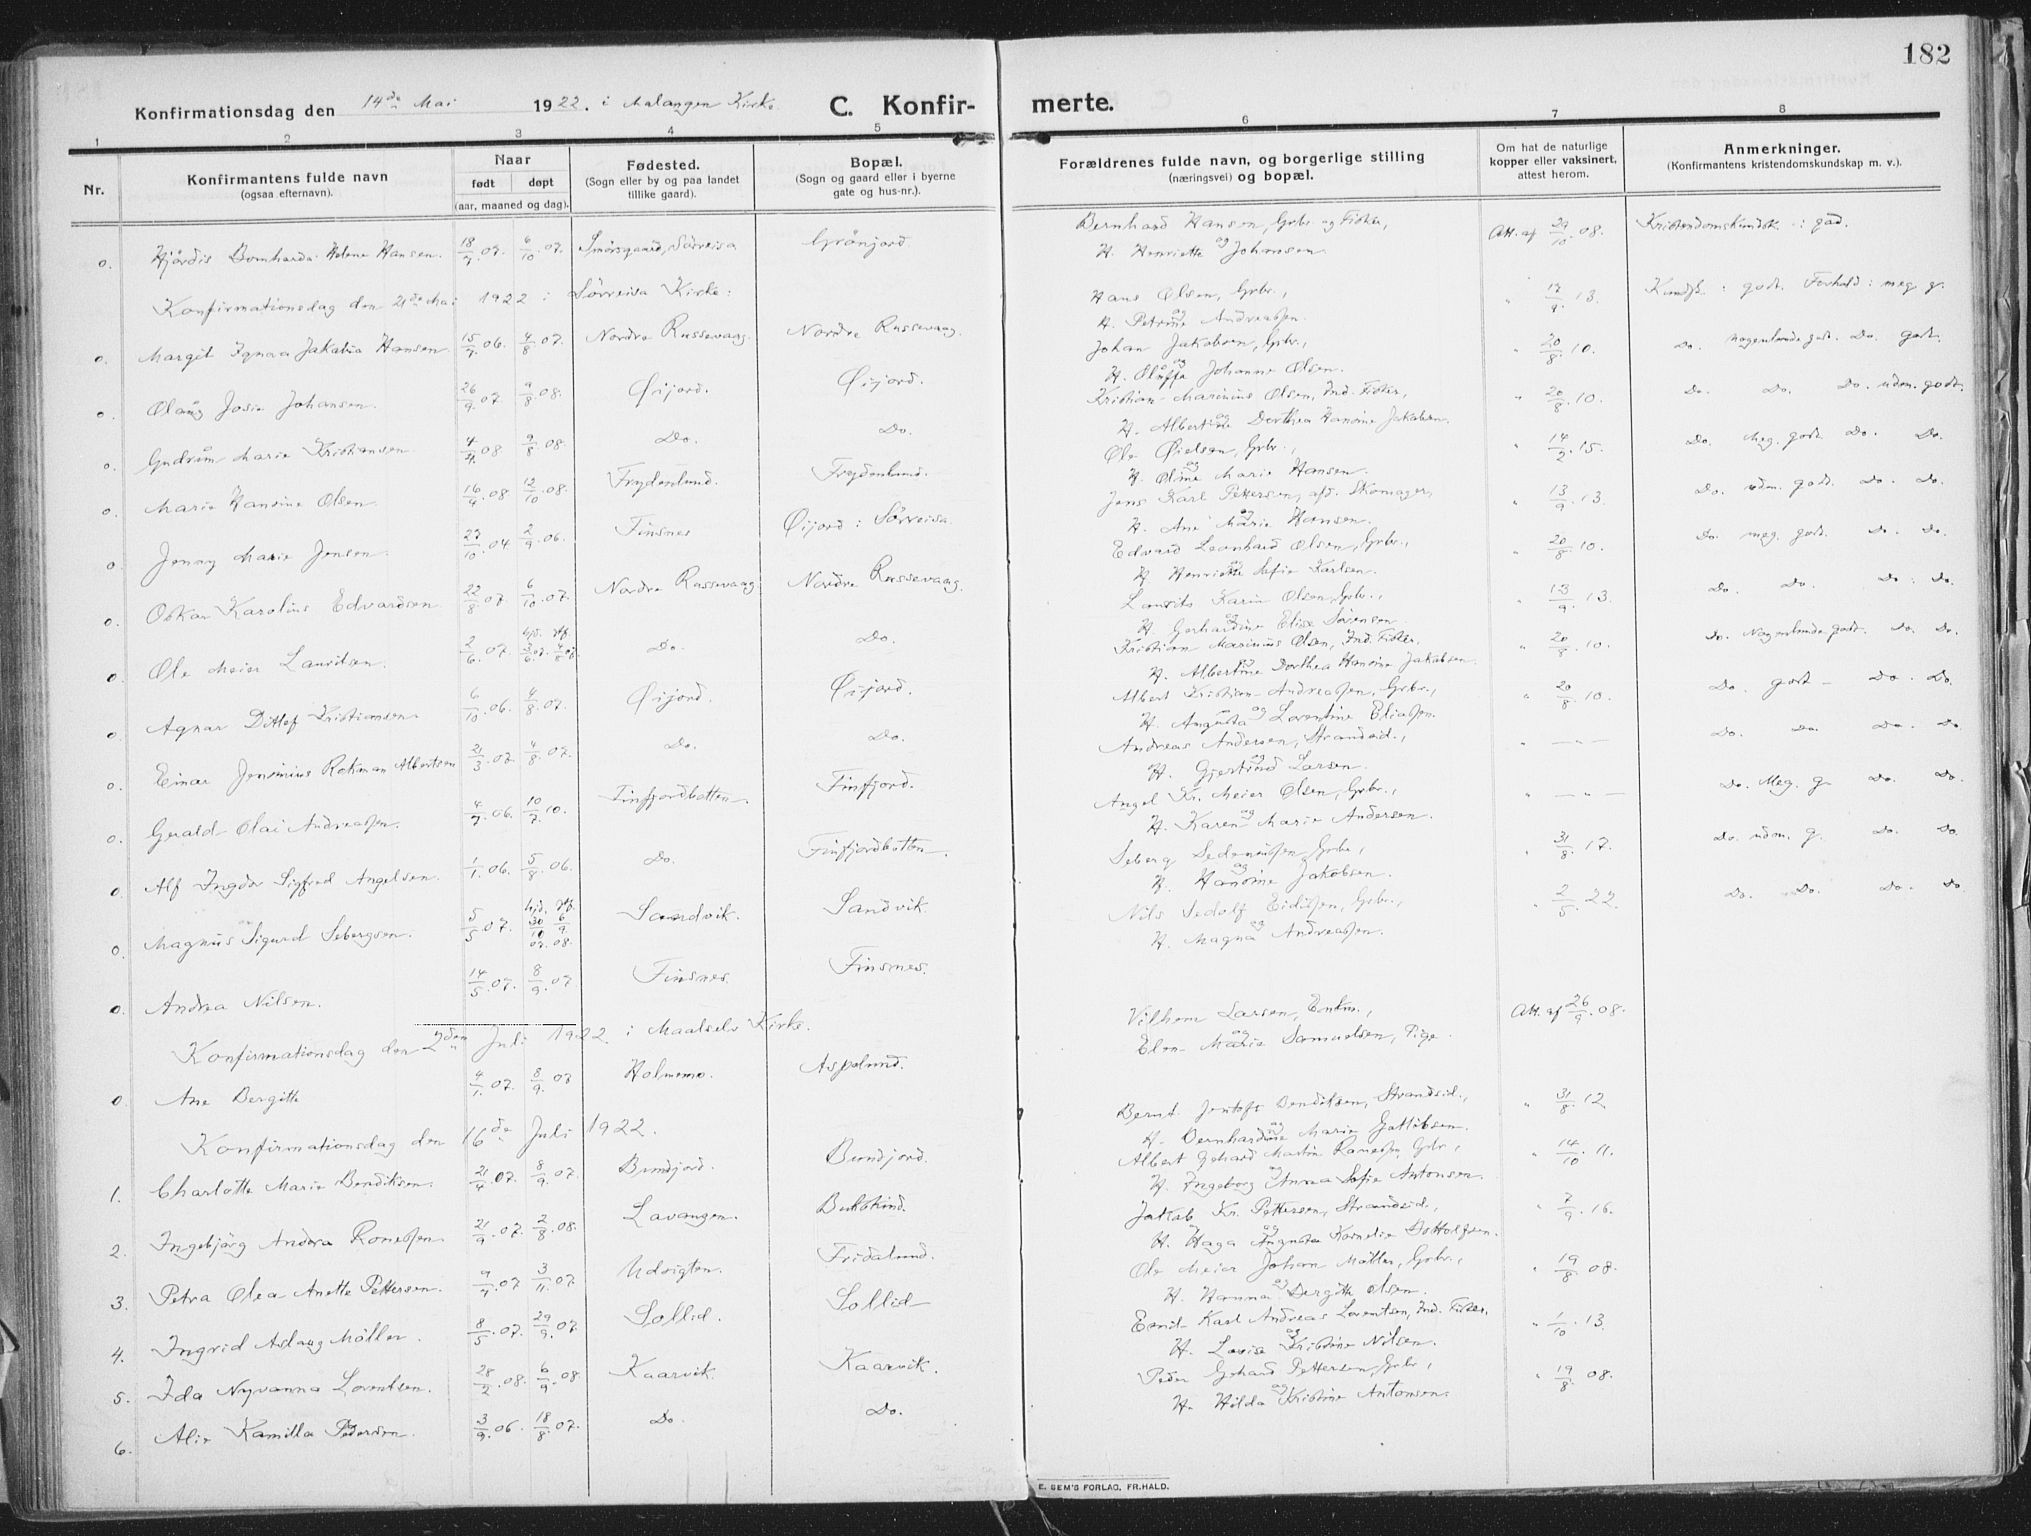 182
Konfirmationsdag den 14de Mai 1922. i Malangen Kirke. C. Konfir- merte.
1 2 3 4 5 6 7 8
Nr. Konfirmantens fulde navn (ogsaa efternavn). Naar født døpt (aar, maaned og dag). Fødested. (Sogn eller by og paa landet tillike gaard). Bopæl. (Sogn og gaard eller i byerne gate og hus-nr.). Forældrenes fulde navn, og borgerlige stilling (næringsvei) og bopæl. Om hat de naturlige kopper eller vaksinert, attest herom. Anmerkninger. (Konfirmantens kristendomskundskap m. v.).
0. Hjørdis Bernharda Helene Hansen. 18/7.07. 6/10.07. Smørsgaard, Sørreisa Grønjord. Bernhard Hansen, Grbr. og Fisker, og H. Henriette Johansen. Att. af 29/10.08. Kristendomskundsk.: god.
Konfirmationsdag den 21de Mai 1922 i Sørreisa Kirke:
0. Margit Ignora Jakabia Hansen 15/7.06. 4/8.07. Nordre Russevaag. Nordre Russevaag. Hans Olsen, Grbr., og H. Petrine Andreassen. " 17/9.13. Kundsk: godt. Forhold: meg g.
0. Olaug Josie Johansen. 26/9.07. 9/8.08. Øijord. Øijord. Johan Jakobsen, Grbr., og H. Oluffa Johanne Olsen. " 20/8.10. Do. Nogenlunde godt. Do. godt.
0. Gudrun Marie Kristiansen 4/4.08 9/8.08. Do. Do. Kristian Marinius Olsen, Ind. Fisker, og H. Albertine Dorthea Hansine Jakobsen. " 20/8.10. Do. Do. Do. udm. godt.
0. Marie Hansine Olsen 16/4.08 12/10.08. Frydenlund. Frydenlund. Ole Øielsen, Grbr., og H. Oline Marie Hansen. " 14/2.15. Do. Meg. godt. Do. Do.
0 Jenny Marie Jensen. 27/10.04 2/9.06. Finsnes Øijord i Sørreisa. Jens Karl Pettersen, afd. Skomager, og H. Ane Marie Hansen. " 13/9.13. Do. udm. godt. Do. Do.
0. Oskar Karolius Edvardsen 22/8.07. 6/10.07. Nordre Russevaag. Nordre Russevaag. Edvard Leonhard Olsen, Grbr., og H. Henriette Sofie Karlsen. " 20/8.10. Do. meg. godt. Do. Do.
0. Ole Meier Lauritsen. 2/6.07. hjd. 3/6.07. stf. 4/8.07. Do. Do. Laurits Karin Olsen, Grbr., og H. Gerhardine Elise Sørensen " 13/9.13. Do. Do. Do. Do.
0. Agnar Ditlef Kristiansen. 6/10.06. 4/8.07. Øijord. Øijord. Kristian Marinius Olsen, Ind. Fisker, og H. Albertine Dorthea Hansine Jakobsen. " 20/8.10. Do. Nogenlunde godt. Do. Do.
0. Einar Jensinius Rokman Albertsen 21/3.07. 4/8.07. Do. Do. Albert Kristian Andreassen, Grbr., og H. Augusta Lorentine Eliassen. " 20/8.10. Do. godt – Do. Do.
0. Gerald Olai Andreassen. 4/7.06. 10/7.10. Finfjordbotten. Finfjord. Andreas Andersen, Strandsid., og H. Gjertrud Larsen. " — " — Do. Do. Do. Do.
0. Alf Ingdor Sigfred Angelsen. 1/1.06. 5/8.06. Do. Finfjordbotten. Angel Kr. Meier Olsen, Grbr., og H. Karen Marie Andersen. " — " — Do. Meg. g. Do. Do.
0. Magnus Sigurd Sebergsen. 5/5.07. hjd. 30/10.07. stf. 6/9.08. Sandvik. Sandvik. Seberg Sedeniussen, Grbr., og H. Hansine Jakobsen. " 31/8.17. Do. udm. g. Do. Do.
0. Andrea Nilsen. 14/5.07. 8/9.07. Finsnes. Finsnes. Nils Sedolf Eidissen, Grbr., og H. Magna Andreassen. " 2/5.22. Do. Do. Do. Do.
Konfirmationsdag den 2den Juli 1922. i Maalselv Kirke.
0. Ane Bergitte 4/1.07. 8/9.07 Holmemo. Aspelund. Vilhem Larsen, Enkm., og Elen Marie Samuelsen, Pige. Att. af 26/9.08.
Konfirmationsdag den 16de Juli 1922.
1. Charlotte Marie Bendiksen. 21/4.07. 8/9.07. Bundjord. Bundjord. Bernt Jentoft Bendiksen, Strandsid., og H. Bernhardine Marie Gotlibsen. " 31/8.12.
2. Ingebjørg Andrea Ronessen. 21/9.07. 2/8.08. Lavangen. Bukskind. Albert Gehard Martin Ronessen, Grbr., og H. Ingeborg Anna Sofie Antonsen. " 14/10.11.
3. Petra Olea Anette Pettersen. 9/7.07 3/11.07. Udsigten. Fridalund. Jakob Kr. Pettersen, Strandsid., og H. Haga Augusta Kornelie Botholfsen. " 7/9.16.
4. Ingrid Aslaug Møller. 8/5.07. 29/9.07. Sollid. Sollid Ole Meier Johan Møller, Grbr., og H. Hanna Bergitte Olsen. " 19/8.08.
5. Ida Nyvanna Lorentsen. 28/2.08. 6/9.08. Kaarvik. Kaarvik. Emil Karl Andreas Lorentsen, Ind. Fisker, og H. Lovise Kristine Nilsen. " 1/10.13.
6. Alie Kamilla Pedersen. 3/9.06. 18/8.07. Do. Do. Peder Gehard Pettersen, Grbr., og H. Hilda Kristine Antonsen. " 19/8.08.
E. SEM'S FORLAG, FR.HALD.